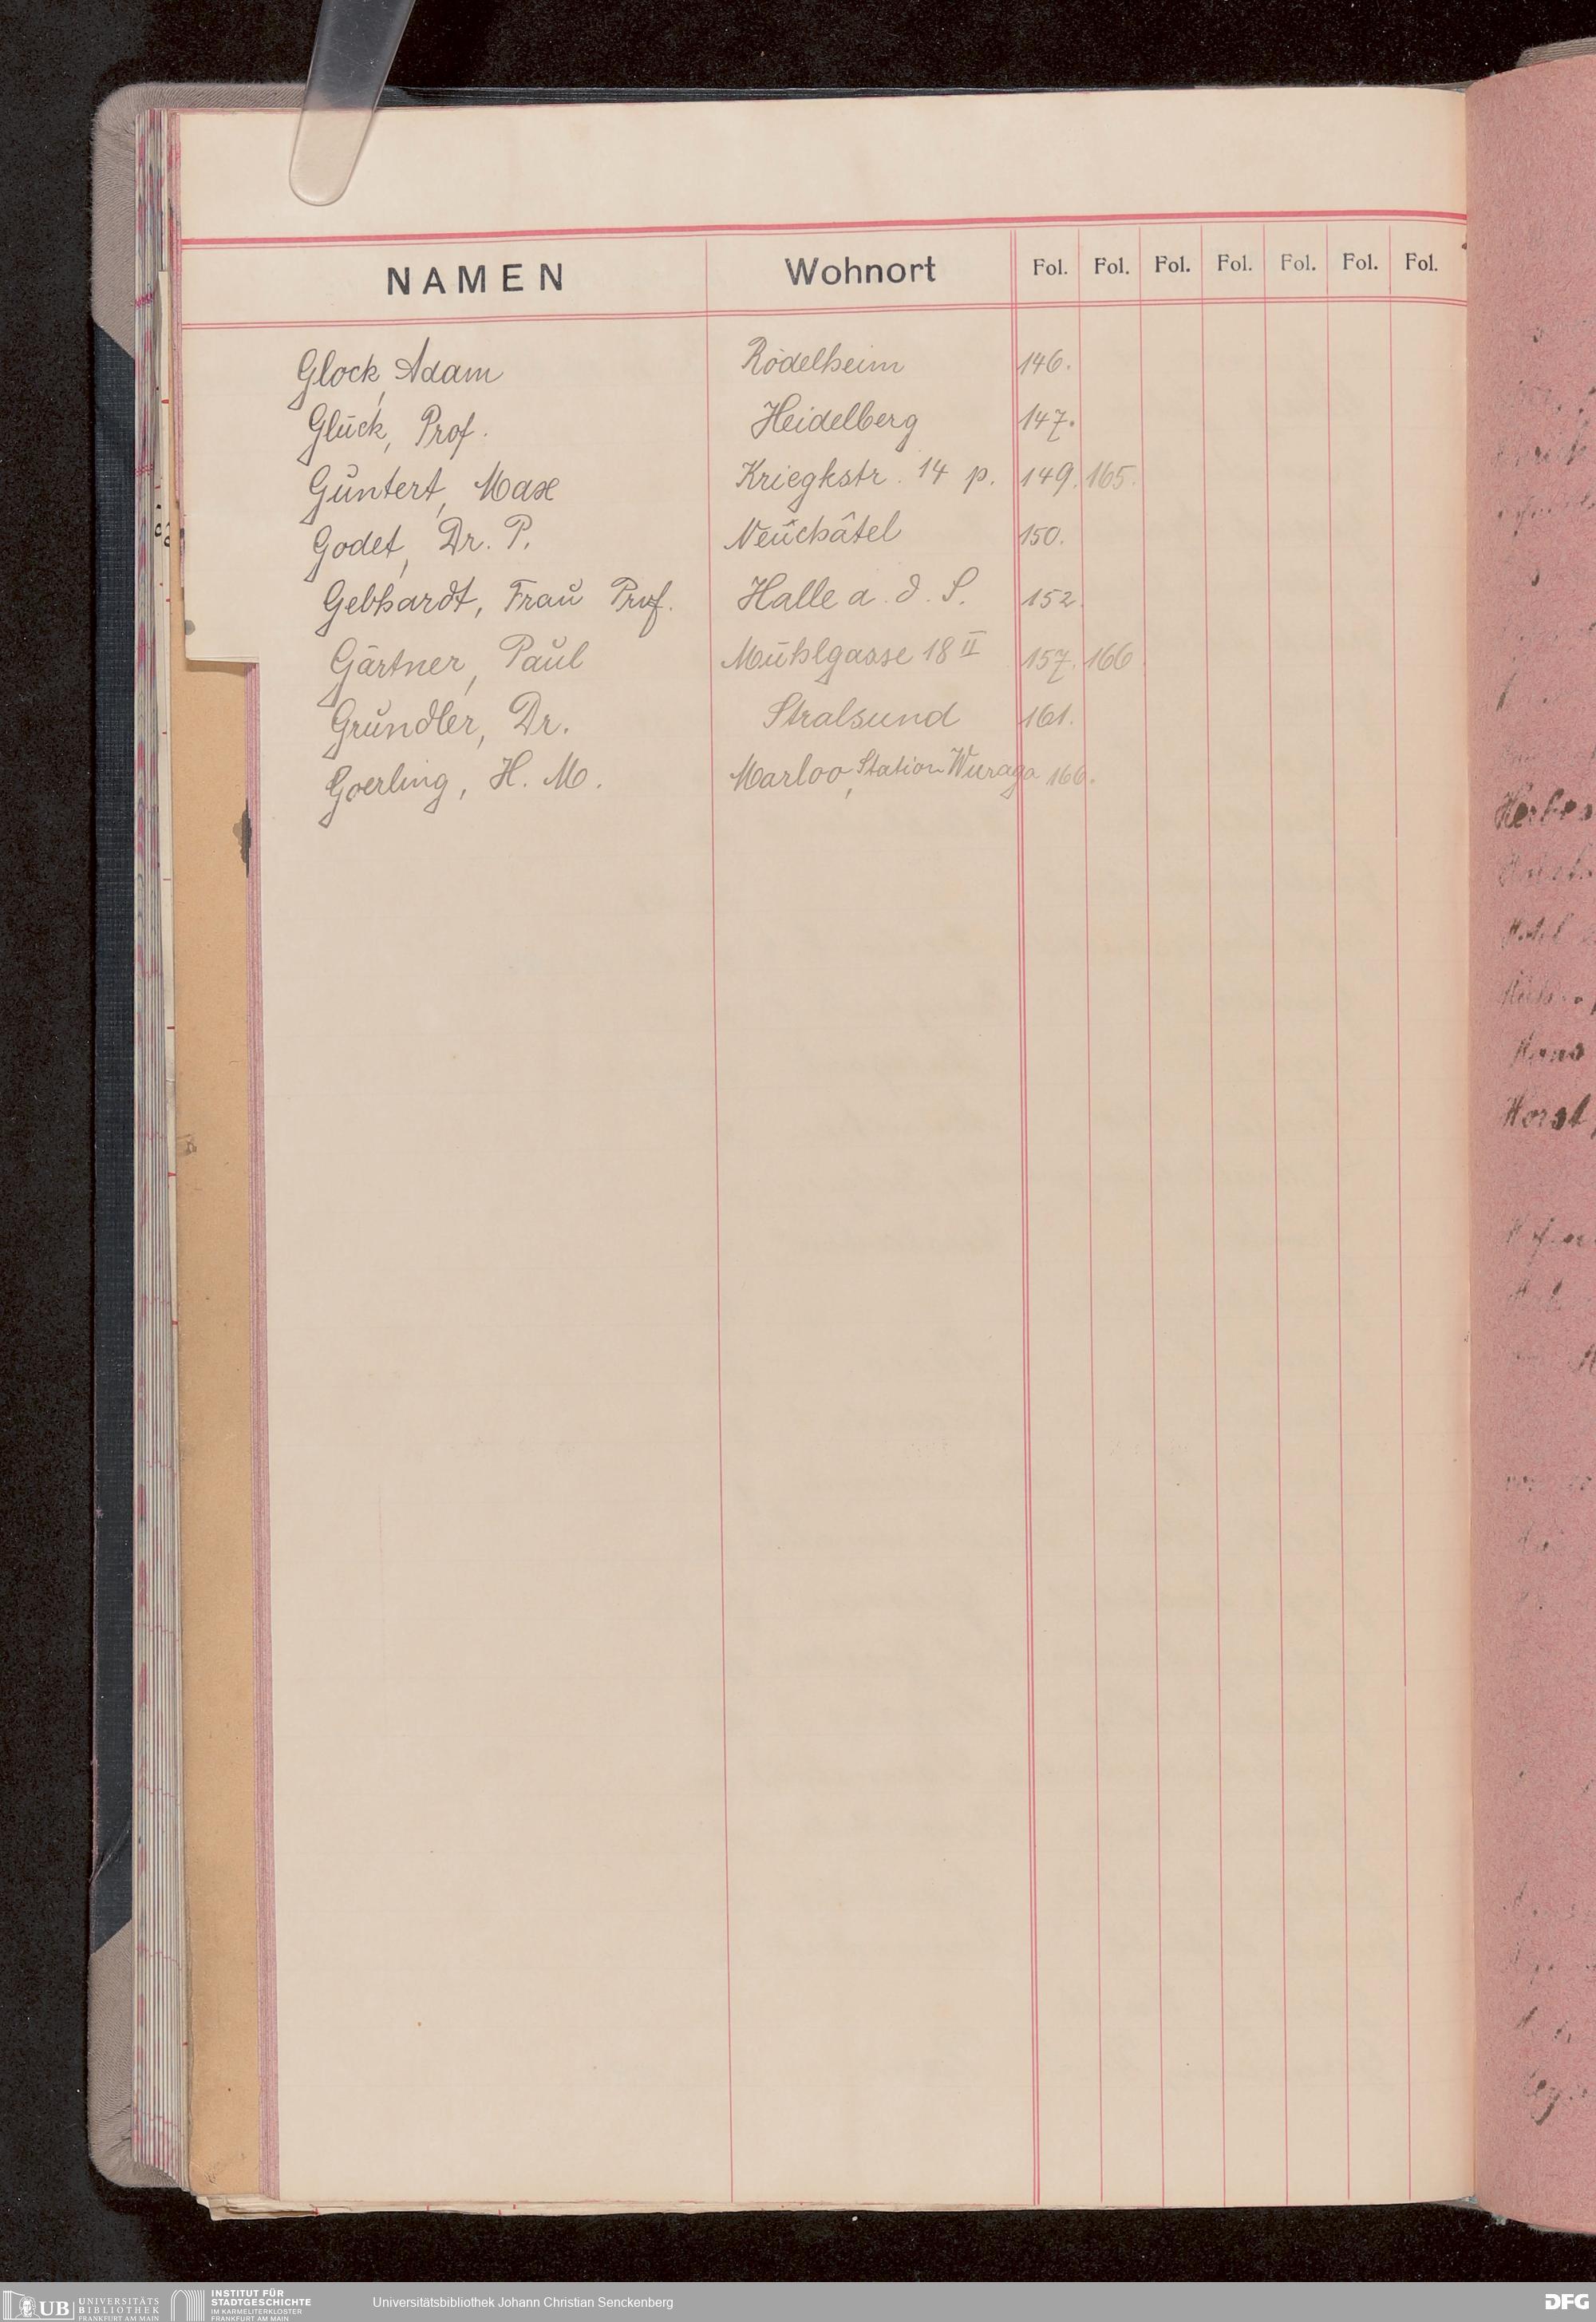 NAMEN Wohnort Fol. Fol. Fol. Fol. Fol. Fol. Fol.
Glock, Adam Rödelheim 146.
Glück, Prof. Heidelberg 147.
Güntert, Max Kriegkstr. 14 p. 149. 165.
Godet, Dr. P. Neuchâtel 150.
Gebhardt, Frau Prof. Halle a. d. S. 152.
Gärtner, Paul Mühlgasse 18 II 157. 166
Gründler, Dr. Stralsund 161.
Goerling, H. M. Marloo, Station Wuraga 166.
Horst
UB UNIVERSITÄTS BIBLIOTHEK FRANKFURT AM MAIN
INSTITUT FÜR STADTGESCHICHTE IM KARMELITERKLOSTER FRANKFURT AM MAIN
Universitätsbibliothek Johann Christian Senckenberg
DFG